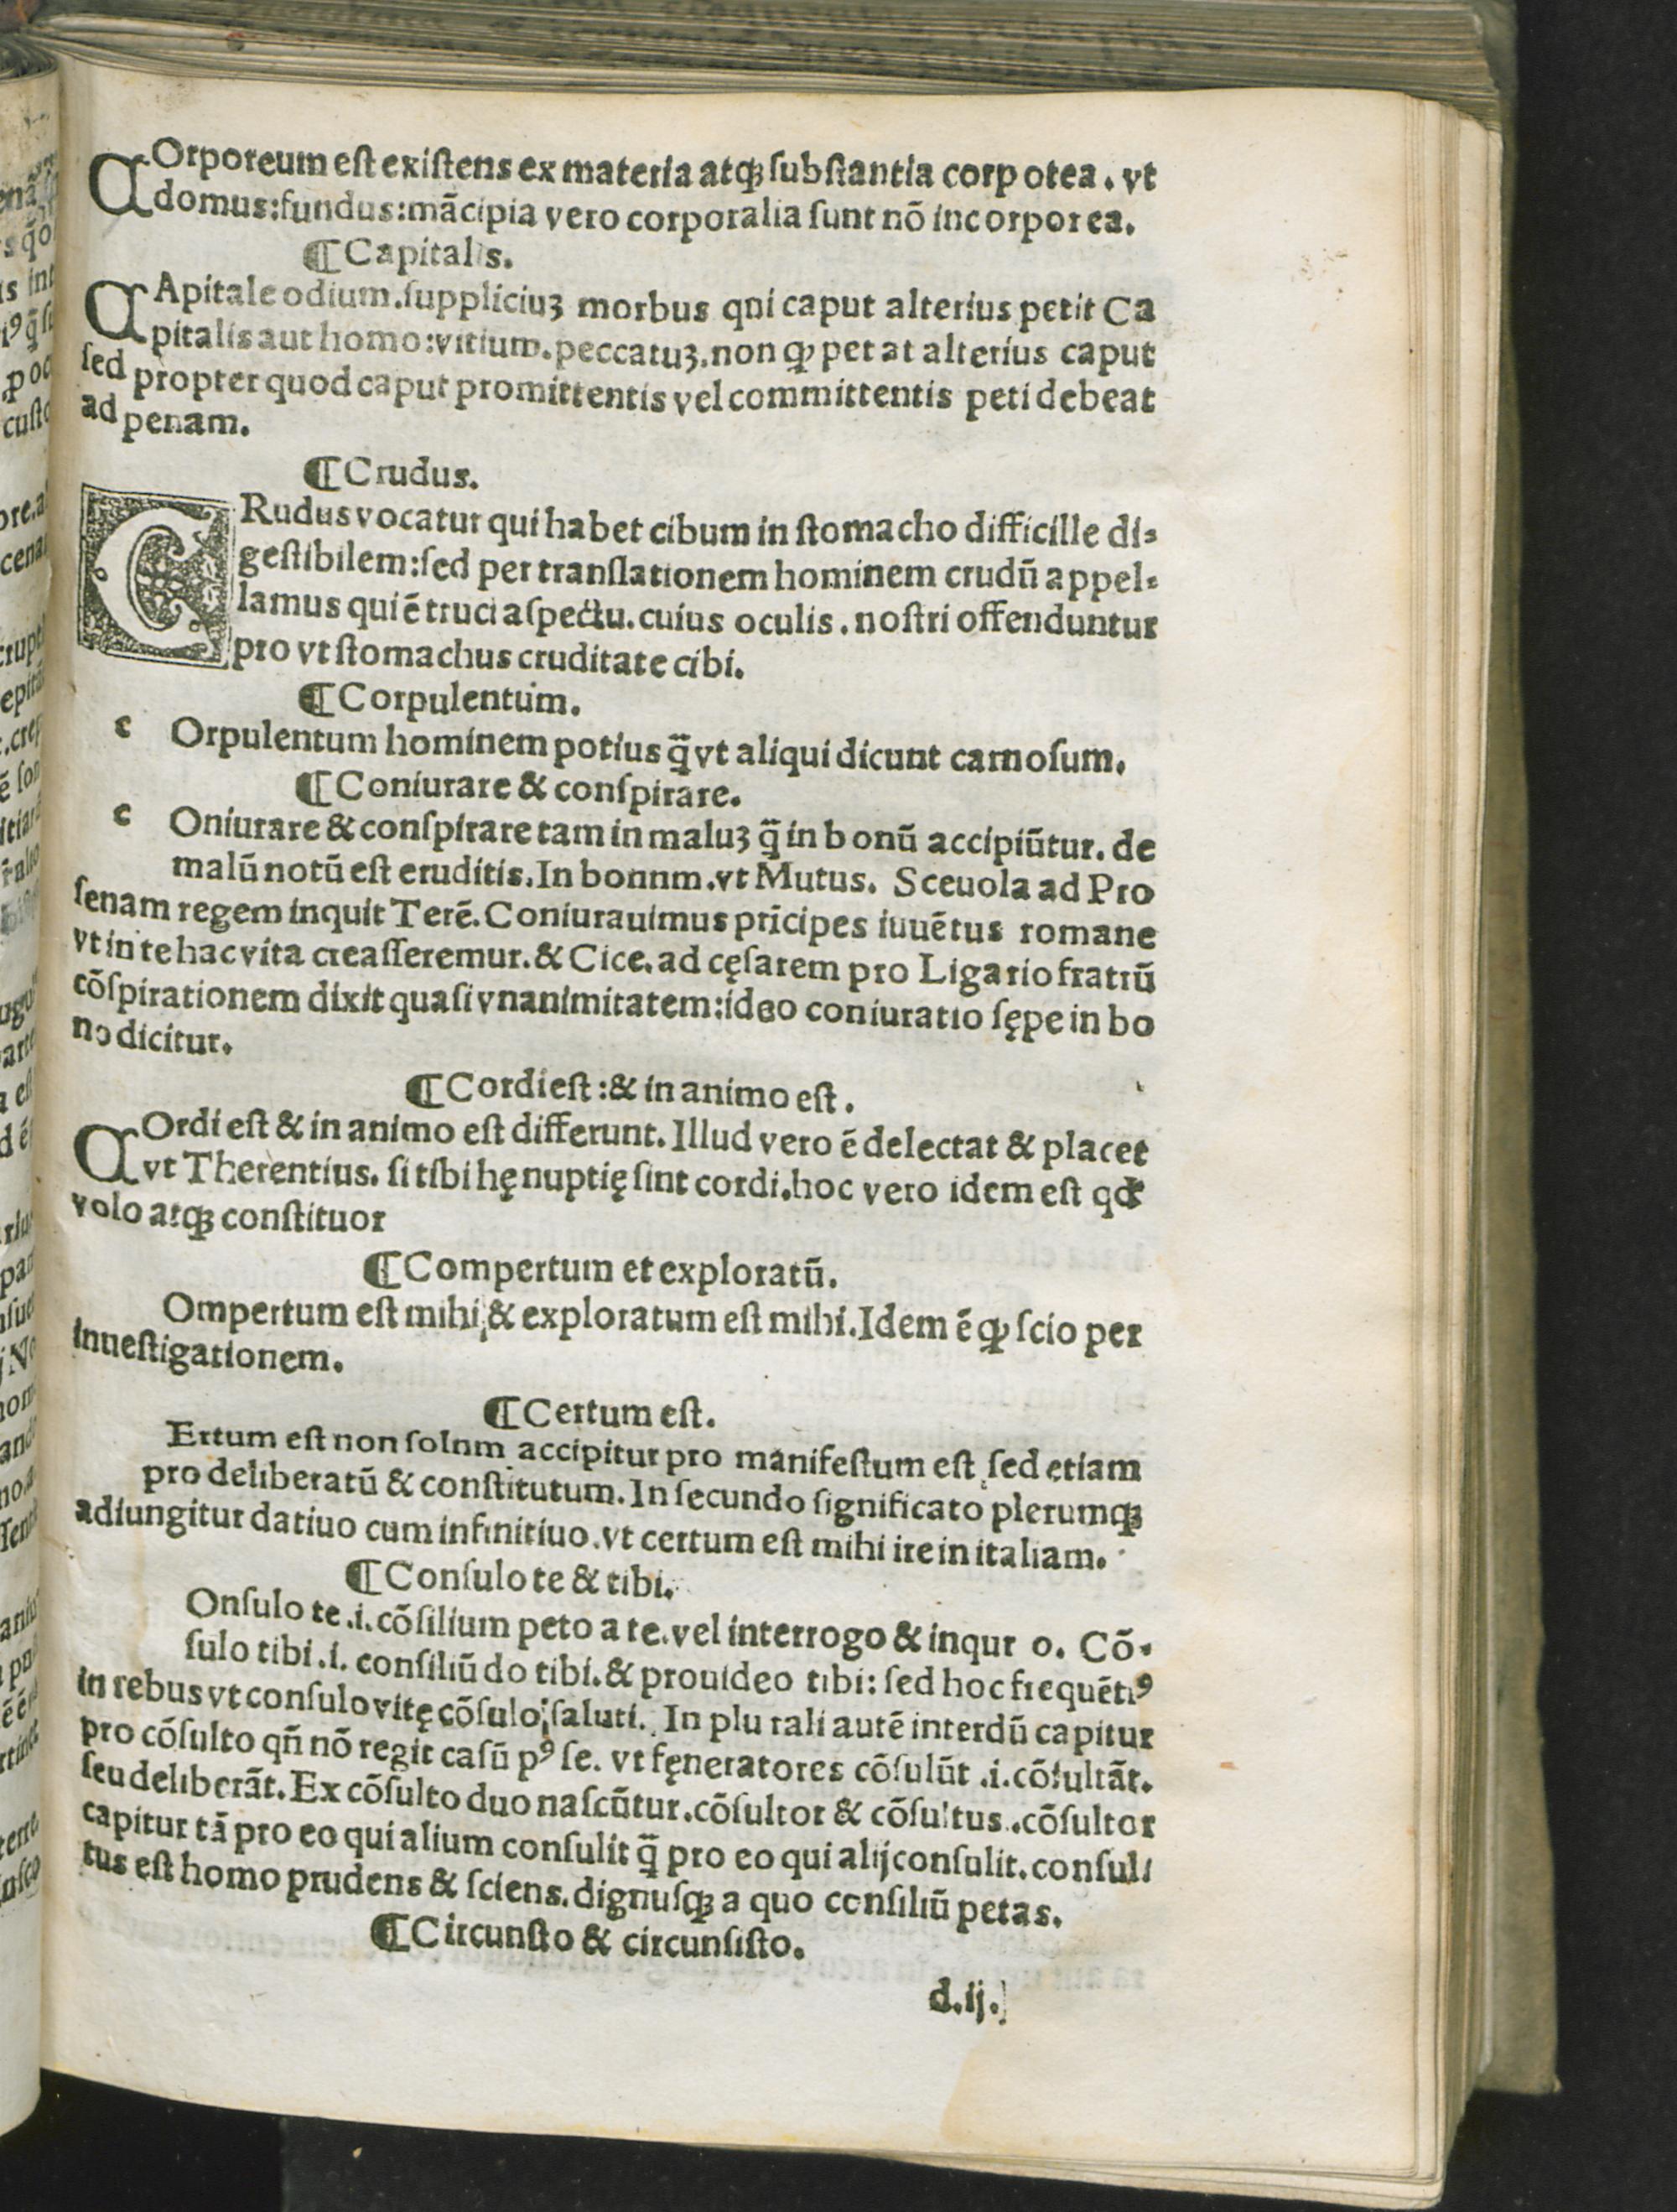 COrporeum eſt exiſtens ex materia atqꝫ ſubſtantia corp otea. vt
domus:fundus:mãcipia vero corporalia ſunt nõ incorporea.
¶Capitalis.
CApitale odium.ſuppliciuꝫ morbus qni caput alterius petit Ca
pitalis aut homo:vitium.peccatuꝫ.non ꝙ pet at alterius caput
ſed propter quod caput promittentis vel committentis peti debeat
ad penam.
¶Crudus.
CRudus vocatur qui habet cibum in ſtomacho difficille di⸗
geſtibilem:ſed per tranſlationem hominem crudũ appel⸗
lamus qui ẽ truci aſpectu.cuius oculis.noſtri offenduntur
pro vt ſtomachus cruditate cibi.
¶Corpulentum.
c Orpulentum hominem potius q̃ vt aliqui dicunt carnoſum.
¶Coniurare & conſpirare.
c Oniurare & conſpirare tam in maluꝫ q̃ in bonũ accipiũtur. de
malũ notũ eſt eruditis.In bonnm.vt Mutus. Sceuola ad Pro
ſenam regem inquit Terẽ.Coniurauimus prĩcipes iuuẽtus romane
vt in te hac vita creaſſeremur.& Cice.ad cęſarem pro Ligario fratrũ
cõſpirationem dixit quaſi vnanimitatem:ideo coniuratio ſępe in bo
no dicitur.
¶Cordi eſt:& in animo eſt.
COrdi eſt & in animo eſt differunt. Illud vero ẽ delectat & placet
vt Therentius. ſi tibi hę nuptię ſint cordi.hoc vero idem eſt qđ
volo atqꝫ conſtituor
¶Compertum et exploratũ.
Ompertum eſt mihi,& exploratum eſt mihi.Idem ẽ ꝙ ſcio per
inueſtigationem.
¶Certum eſt.
Ertum eſt non ſolnm accipitur pro manifeſtum eſt ſed etiam
pro deliberatũ & conſtitutum. In ſecundo ſignificato plerumqꝫ
adiungitur datiuo cum infinitiuo.vt certum eſt mihi ire in italiam.
¶Conſulo te & tibi.
Onſulo te .i. cõſilium peto a te.vel interrogo & inqur o. Cõ⸗
ſulo tibi .i. conſiliũ do tibi.& prouideo tibi: ſed hoc frequẽtiꝰ
in rebus vt conſulo vitę cõſulo ſaluti. In plu rali autẽ interdũ capitur
pro cõſulto qñ nõ regit caſũ pꝰ ſe. vt fęneratores cõſulũt .i.cõſultãt.
ſeu deliberãt. Ex cõſulto duo naſcũtur.cõſultor & cõſultus.cõſultor
capitur tã pro eo qui alium conſulit q̃ pro eo qui alij conſulit.conſul
tus eſt homo prudens & ſciens.dignuſqꝫ a quo conſiliũ petas.
¶Circunſto & circunſiſto.
d.ij.